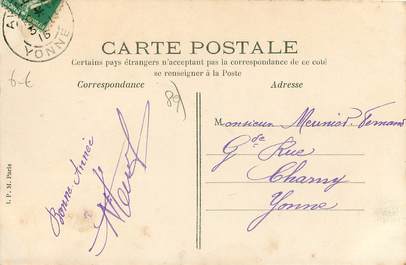 YONNE
CARTE POSTALE
Certains pays étrangers n'acceptent pas la correspondance de ce coté
se renseigner à la Poste
Correspondance
Adresse
6-6
89
Bonne Année
Monsieur Meunier Fernand
Gde Rue
Charny
Yonne
I. P. M. Paris